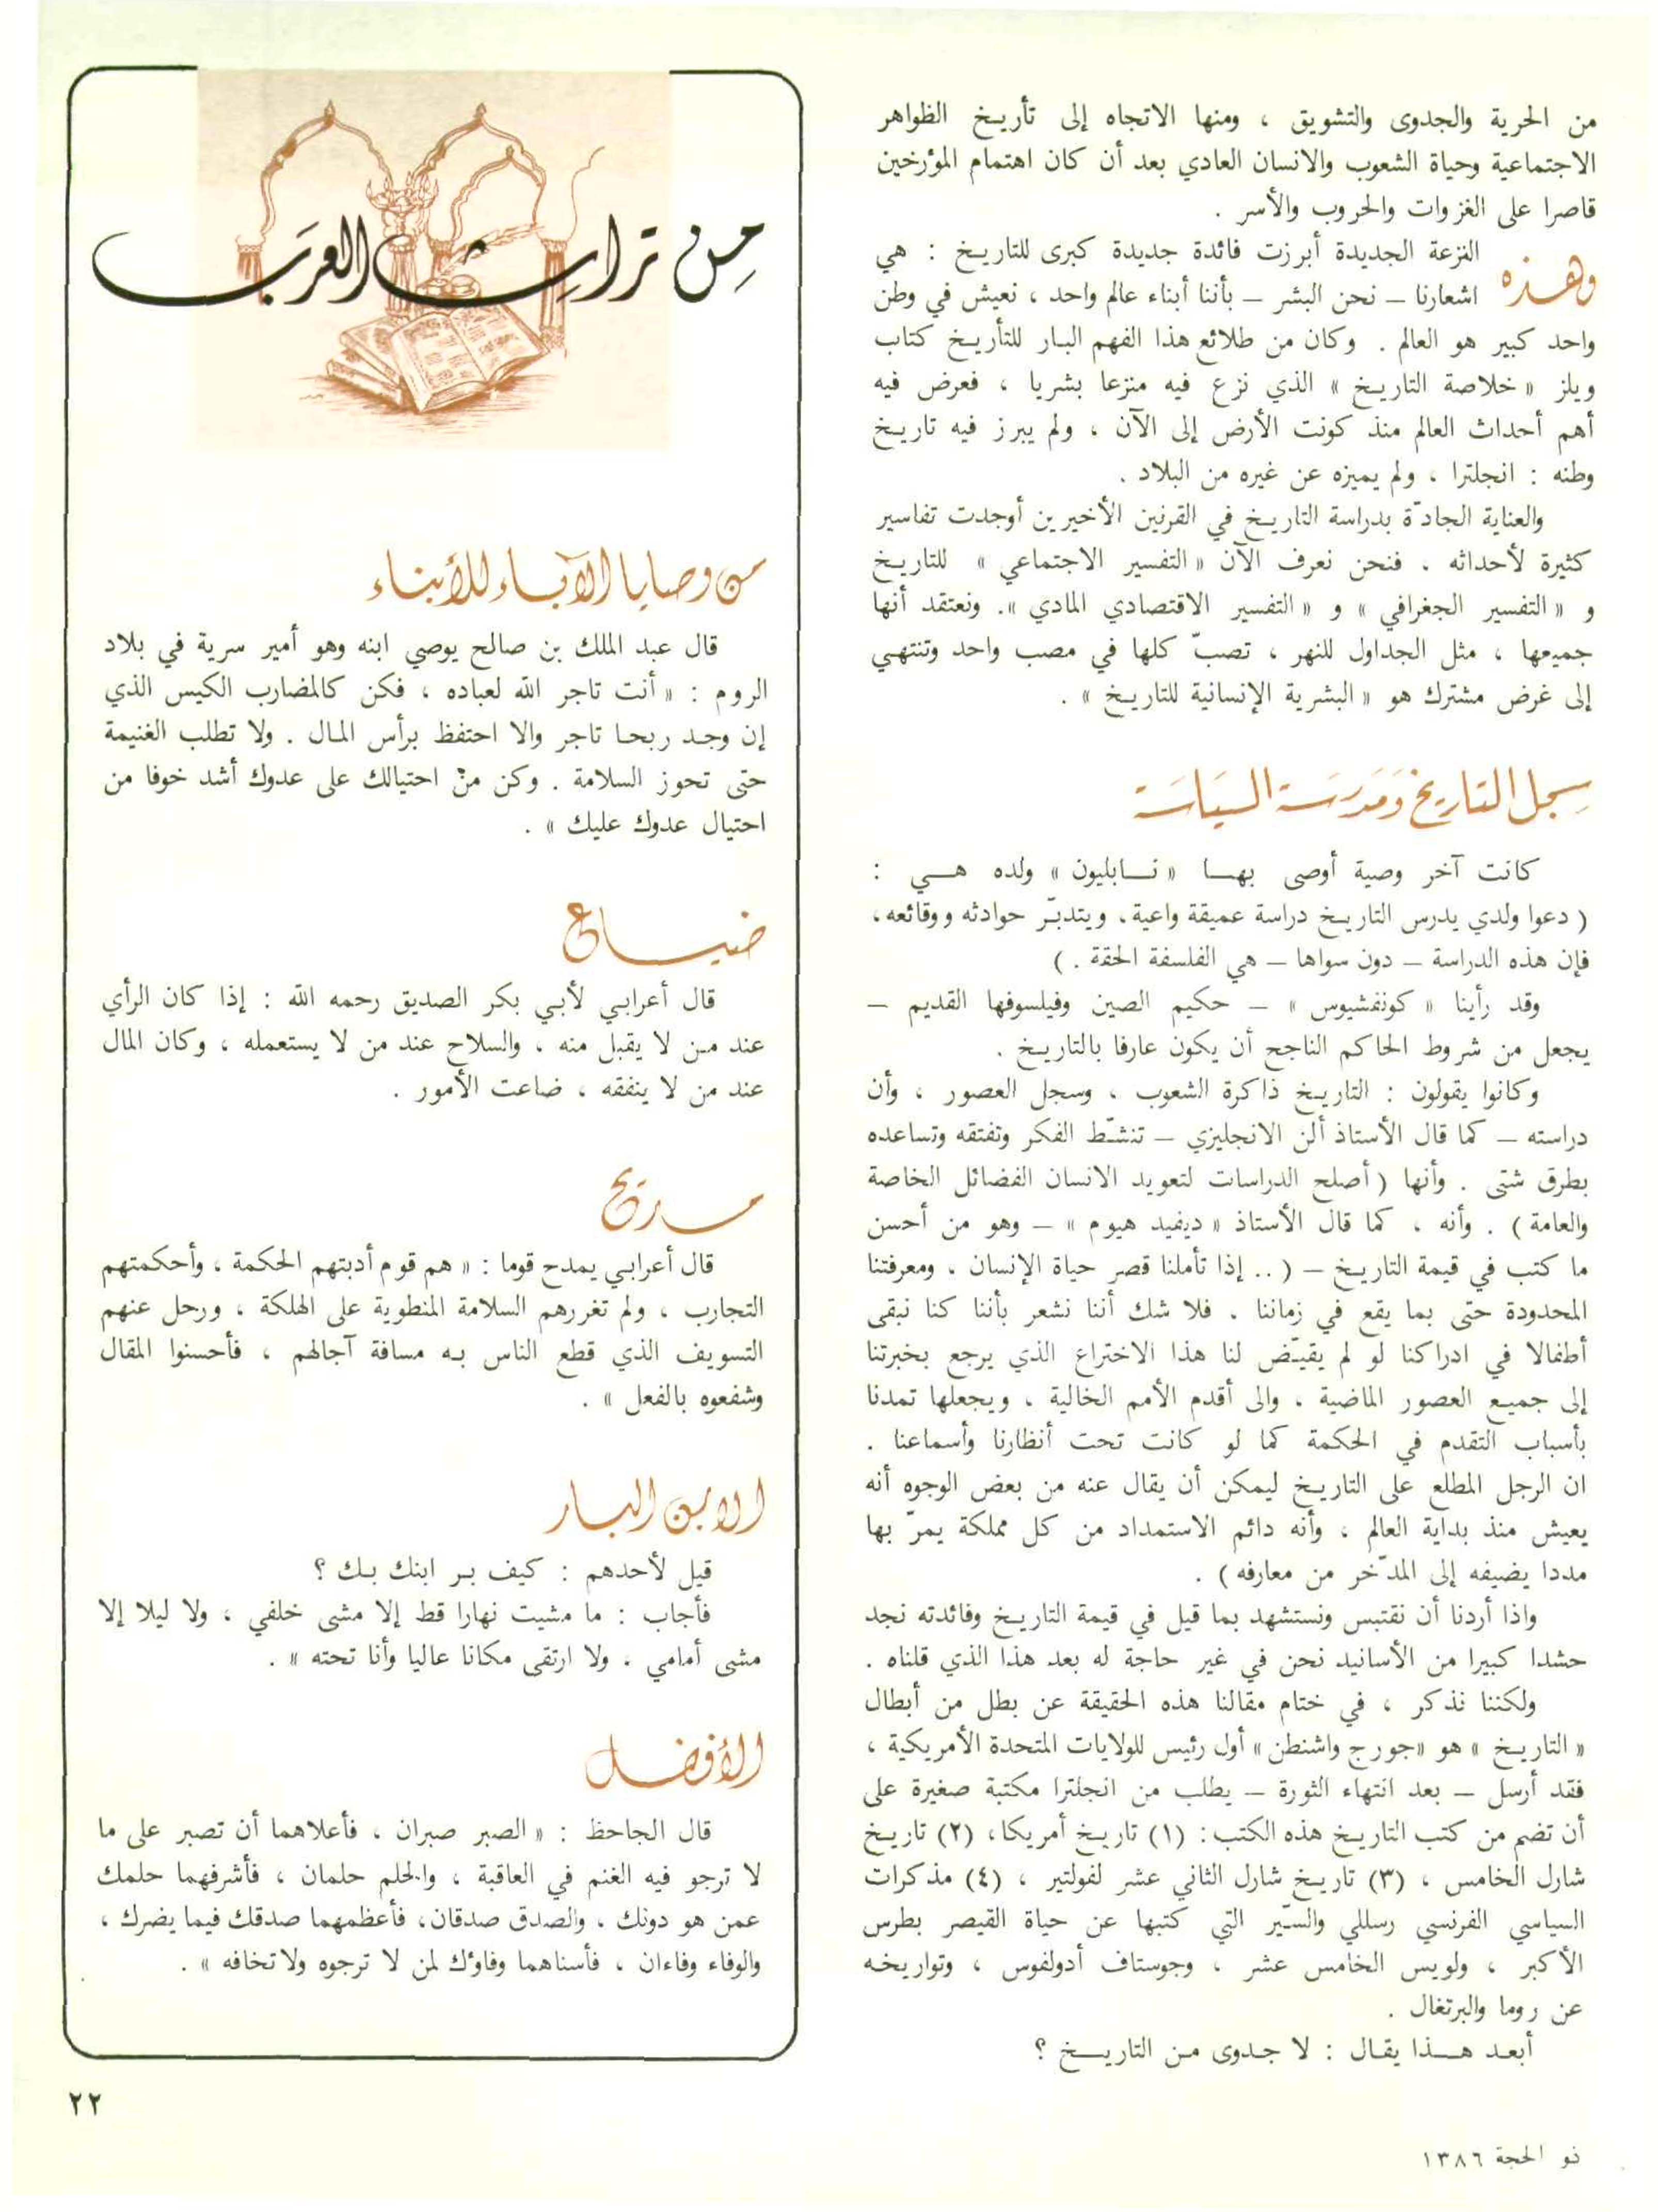 من الحرية والجدوى والتشويق ، ومنها الاتجاه إلى تأريخ الظواهر
الاجتماعية وحياة الشعوب والانسان العادي بعد أن كان اهتمام المؤرخين
قاصرا على الغزوات والحروب والأسر .
وهذه النزعة الجديدة أبرزت فائدة جديدة كبرى للتاريخ : هي
اشعارنا – نحن البشر – بأننا أبناء عالم واحد ، نعيش في وطن
واحد كبير هو العالم . وكان من طلائع هذا الفهم البار للتأريخ كتاب
ويلز « خلاصة التاريخ » الذي نزع فيه منزعا بشريا ، فعرض فيه
أهم أحداث العالم منذ كونت الأرض إلى الآن ، ولم يبرز فيه تاريخ
وطنه : انجلترا ، ولم يميزه عن غيره من البلاد .
والعناية الجادّة بدراسة التاريخ في القرنين الأخيرين أوجدت تفاسير
كثيرة لأحداثه . فنحن نعرف الآن « التفسير الاجتماعي » للتاريخ
و « التفسير الجغرافي » و « التفسير الاقتصادي المادي ». ونعتقد أنها
جميعها ، مثل الجداول للنهر ، تصبّ كلها في مصب واحد وتنتهي
إلى غرض مشترك هو « البشرية الإنسانية للتاريخ » .
سجل التاريخ ومدرسة السياسة
كانت آخر وصية أوصى بها « نابليون » ولده هي :
( دعوا ولدي يدرس التاريخ دراسة عميقة واعية، ويتدبّر حوادثه ووقائعه،
فإن هذه الدراسة – دون سواها – هي الفلسفة الحقة . )
وقد رأينا « كونفشيوس » – حكيم الصين وفيلسوفها القديم –
يجعل من شروط الحاكم الناجح أن يكون عارفا بالتاريخ .
وكانوا يقولون : التاريخ ذاكرة الشعوب ، وسجل العصور ، وأن
دراسته – كما قال الأستاذ ألن الانجليزي – تنشّط الفكر وتفتقه وتساعده
بطرق شتى . وأنها ( أصلح الدراسات لتعويد الانسان الفضائل الخاصة
والعامة ) . وأنه ، كما قال الأستاذ « ديفيد هيوم » – وهو من أحسن
ما كتب في قيمة التاريخ – ( .. إذا تأملنا قصر حياة الإنسان ، ومعرفتنا
المحدودة حتى بما يقع في زماننا . فلا شك أننا نشعر بأننا كنا نبقى
أطفالا في ادراكنا لو لم يقيّض لنا هذا الاختراع الذي يرجع بخبرتنا
إلى جميع العصور الماضية ، والى أقدم الأمم الخالية ، ويجعلها تمدنا
بأسباب التقدم في الحكمة كما لو كانت تحت أنظارنا وأسماعنا .
ان الرجل المطلع على التاريخ ليمكن أن يقال عنه من بعض الوجوه أنه
يعيش منذ بداية العالم ، وأنه دائم الاستمداد من كل مملكة يمرّ بها
مددا يضيفه إلى المدّخر من معارفه ) .
واذا أردنا أن نقتبس ونستشهد بما قيل في قيمة التاريخ وفائدته نجد
حشدا كبيرا من الأسانيد نحن في غير حاجة له بعد هذا الذي قلناه .
ولكننا نذكر ، في ختام مقالنا هذه الحقيقة عن بطل من أبطال
« التاريخ » هو «جورج واشنطن» أول رئيس للولايات المتحدة الأمريكية ،
فقد أرسل – بعد انتهاء الثورة – يطلب من انجلترا مكتبة صغيرة على
أن تضم من كتب التاريخ هذه الكتب: (١) تاريخ أمريكا، (٢) تاريخ
شارل الخامس ، (٣) تاريخ شارل الثاني عشر لفولتير ، (٤) مذكرات
السياسي الفرنسي رسللي والسّير التي كتبها عن حياة القيصر بطرس
الأكبر ، ولويس الخامس عشر ، وجوستاف أدولفوس ، وتواريخه
عن روما والبرتغال .
أبعد هذا يقال : لا جدوى من التاريخ ؟
من تراث العرب
من وصايا الآباء للأبناء
قال عبد الملك بن صالح يوصي ابنه وهو أمير سرية في بلاد
الروم : « أنت تاجر الله لعباده ، فكن كالمضارب الكيس الذي
إن وجد ربحا تاجر والا احتفظ برأس المال . ولا تطلب الغنيمة
حتى تحوز السلامة . وكن من احتيالك على عدوك أشد خوفا من
احتيال عدوك عليك » .
ضياع
قال أعرابي لأبي بكر الصديق رحمه الله : إذا كان الرأي
عند من لا يقبل منه ، والسلاح عند من لا يستعمله ، وكان المال
عند من لا ينفقه ، ضاعت الأمور .
مديح
قال أعرابي يمدح قوما : « هم قوم أدبتهم الحكمة ، وأحكمتهم
التجارب ، ولم تغررهم السلامة المنطوية على الهلكة ، ورحل عنهم
التسويف الذي قطع الناس به مسافة آجالهم ، فأحسنوا المقال
وشفعوه بالفعل » .
الابن البار
قيل لأحدهم : كيف بر ابنك بك ؟
فأجاب : ما مشيت نهارا قط إلا مشى خلفي ، ولا ليلا إلا
مشى أمامي . ولا ارتقى مكانا عاليا وأنا تحته » .
الأفضل
قال الجاحظ : « الصبر صبران ، فأعلاهما أن تصبر على ما
لا ترجو فيه الغنم في العاقبة ، والحلم حلمان ، فأشرفهما حلمك
عمن هو دونك ، والصدق صدقان، فأعظمهما صدقك فيما يضرك ،
والوفاء وفاءان ، فأسناهما وفاؤك لمن لا ترجوه ولا تخافه » .
٢٢
ذو الحجة ١٣٨٦